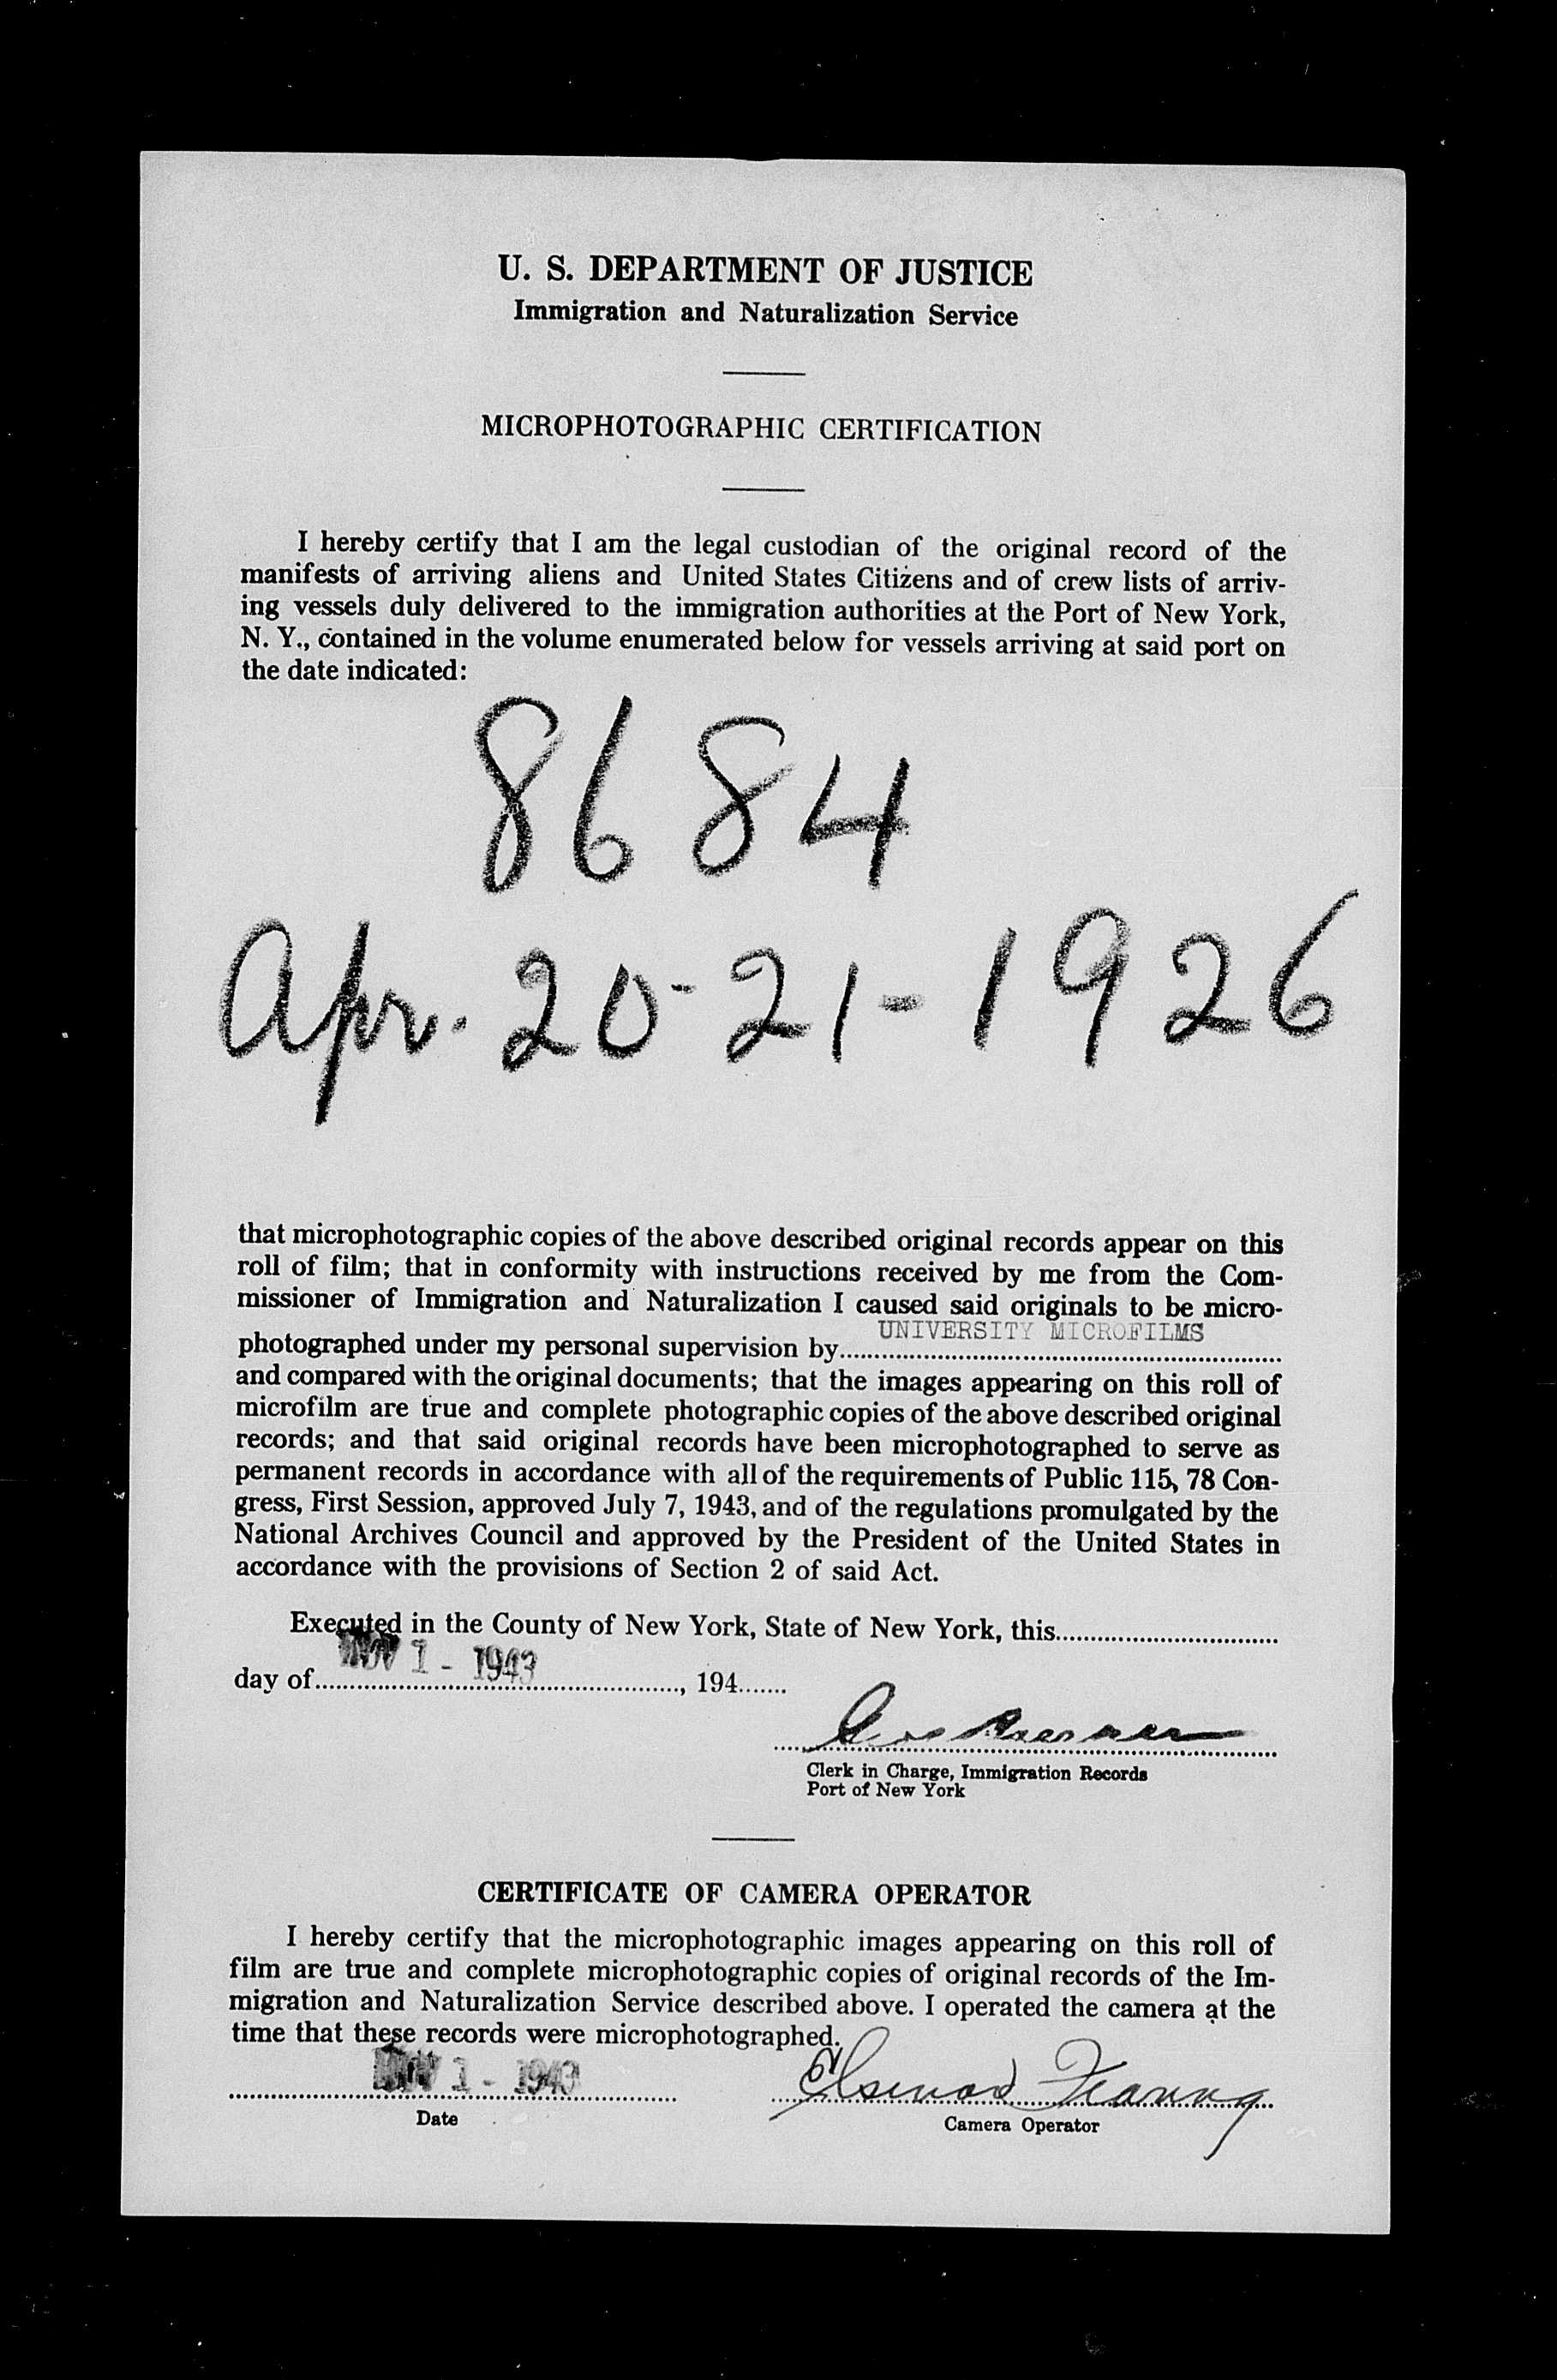 U. S. DEPARTMENT OF JUSTICE
Immigration and Naturalization Service
MICROPHOTOGRAPHIC CERTIFICATION
I hereby certify that I am the legal custodian of the original record of the
manifests of arriving aliens and United States Citizens and of crew lists of arriv-
ing vessels duly delivered to the immigration authorities at the Port of New York,
N. Y., contained in the volume enumerated below for vessels arriving at said port on
the date indicated:
8684
Apr. 20-21-1926
that microphotographic copies of the above described original records appear on this
roll of film; that in conformity with instructions received by me from the Com-
missioner of Immigration and Naturalization I caused said originals to be micro-
photographed under my personal supervision by UNIVERSITY MICROFILMS
and compared with the original documents; that the images appearing on this roll of
microfilm are true and complete photographic copies of the above described original
records; and that said original records have been microphotographed to serve as
permanent records in accordance with all of the requirements of Public 115, 78 Con-
gress, First Session, approved July 7, 1943, and of the regulations promulgated by the
National Archives Council and approved by the President of the United States in
accordance with the provisions of Section 2 of said Act.
Executed in the County of New York, State of New York, this
day of NOV 1 - 1943, 194
Clerk in Charge, Immigration Records
Port of New York
CERTIFICATE OF CAMERA OPERATOR
I hereby certify that the microphotographic images appearing on this roll of
film are true and complete microphotographic copies of original records of the Im-
migration and Naturalization Service described above. I operated the camera at the
time that these records were microphotographed.
NOV 1 - 1943
Date
Camera Operator